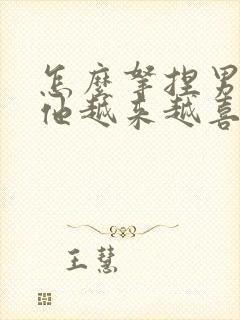 怎麼拏捏男
他越来越喜
王慧